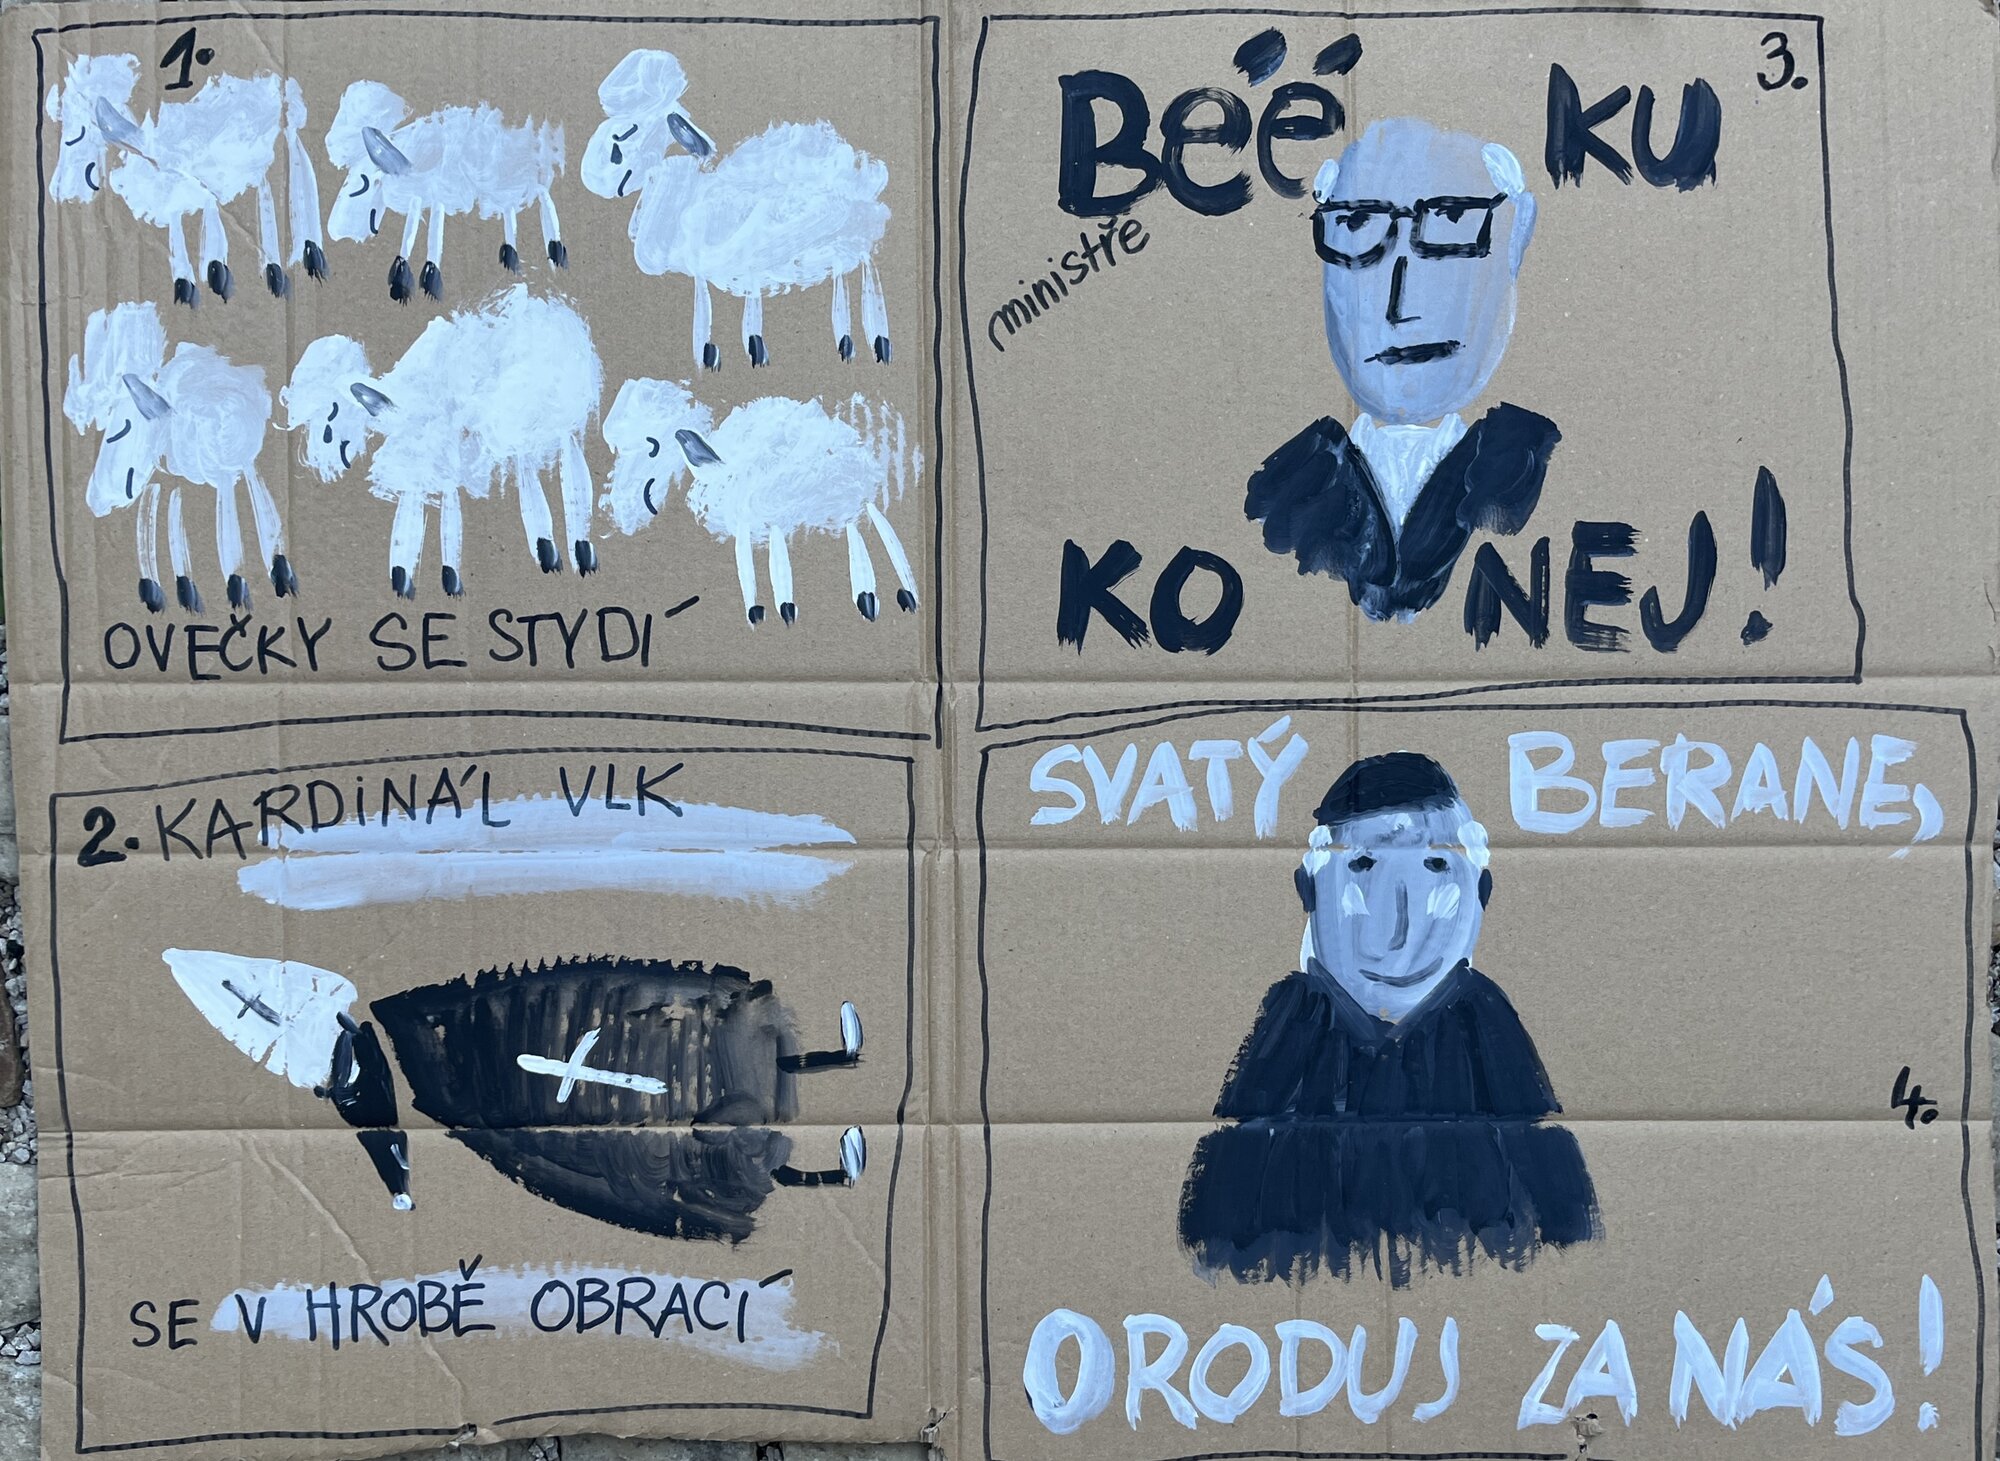 1.
OVEČKY SE STYDÍ
2. KARDINÁL VLK
SE V HROBĚ OBRACÍ
3.
Bééé KU
ministře
KO NEJ!
SVATÝ BERANE,
4.
ORODUJ ZA NÁS!